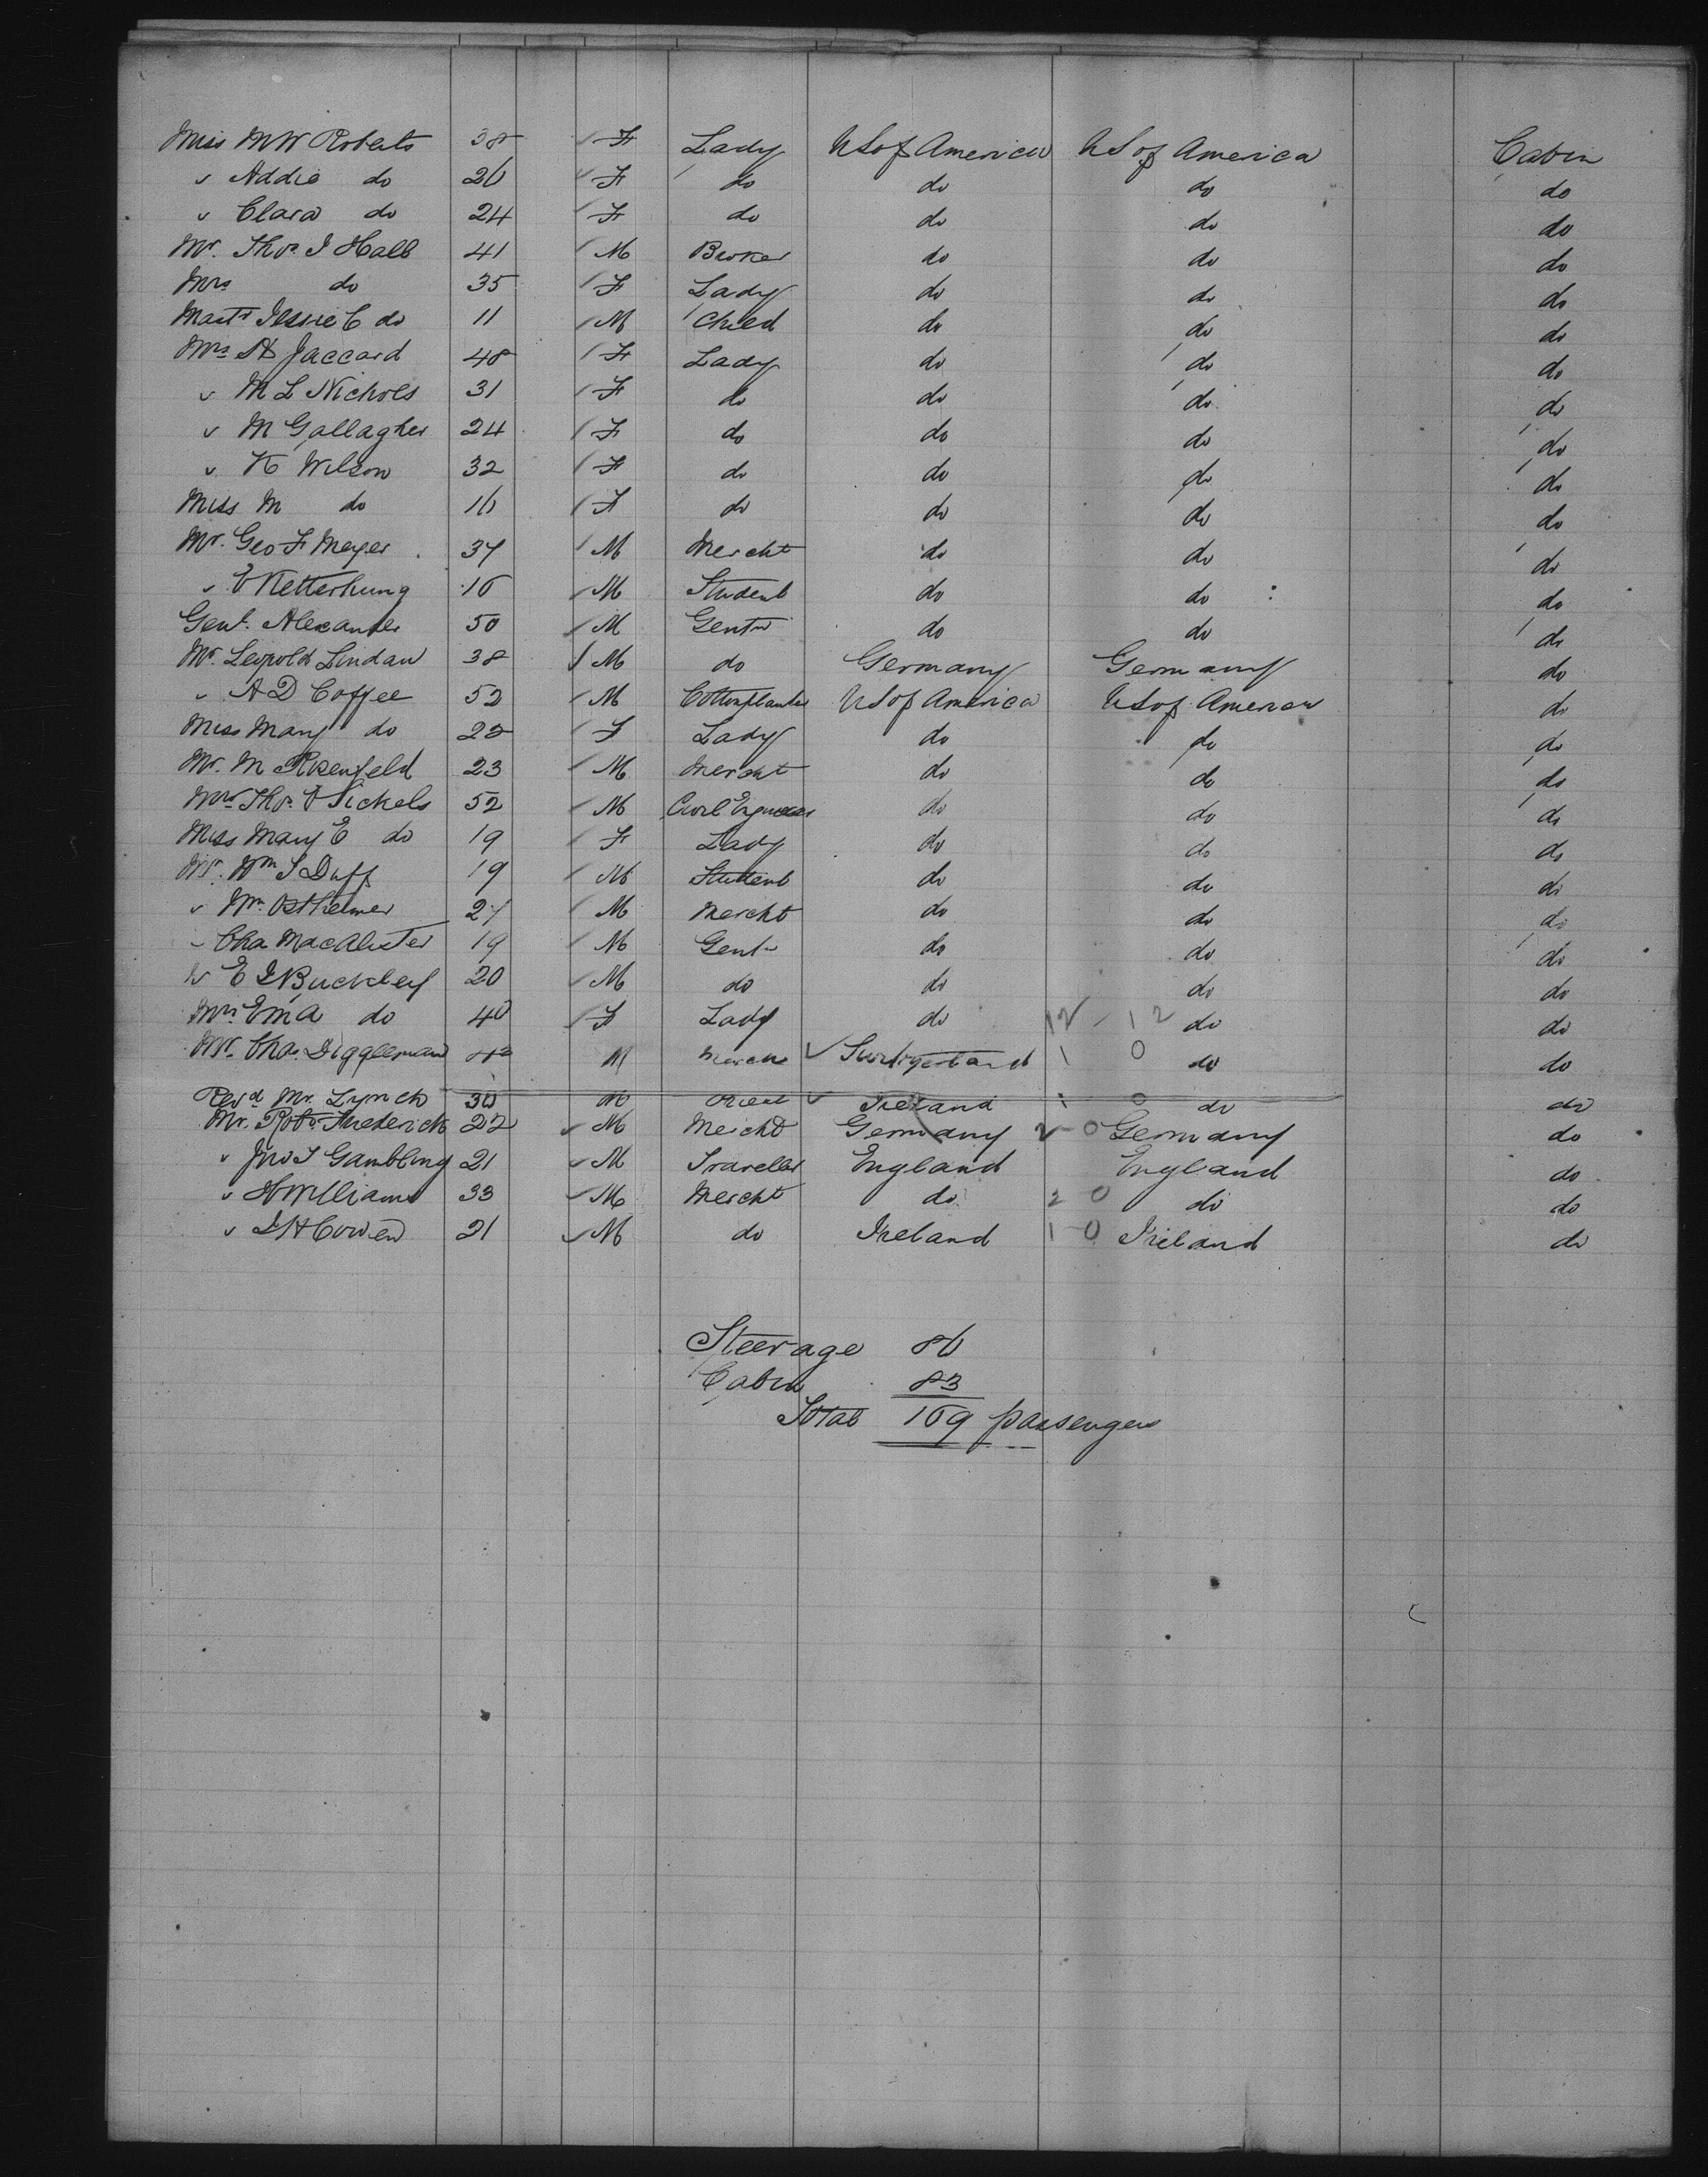 Miss M W Roberts 38 F Lady U S of America U S of America Cabin
" Addie do 26 F do do do do
" Clara do 24 F do do do do
Mr. Thos. J Hall 41 M Broker do do do
Mrs do 35 F Lady do do do
Mastr Jessie C do 11 M Child do do do
Mrs A Jaccard 48 F Lady do do do
" M L Nichols 31 F do do do do
" M Gallagher 24 F do do do do
" K Wilson 32 F do do do do
Miss M do 16 F do do do do
Mr. Geo F Meyer 37 M Mercht do do do
" E Ketterhung 16 M Student do do do
Genl. Alexander 50 M Gentn do do do
Mr. Leopold Lindau 38 M do Germany Germany do
" A D Coffee 52 M Cottonplanter U S of America U S of America do
Miss Mary do 22 F Lady do do do
Mr. M Rosenfeld 23 M Mercht do do do
Mr. Thos. Sickels 52 M Civil Engineer do do do
Miss Mary E do 19 F Lady do do do
Mr. Wm S Duff 19 M Student do do do
" Wm. Ostheimer 27 M Mercht do do do
" Cha MacAlister 19 M Gentn do do do
" E J Buckley 20 M do do do do
Mrs. Em A do 40 F Lady do 12 - 12 do do
Mr. Chas. Diggleman M Merch Switzerland 1 0 do do
Revd Mr. Lynch 30 M Ireland 1 0 do do
Mr. Robt Frederick 22 M Mercht Germany 2 - 0 Germany do
" Jno J Gambling 21 M Traveller England England do
" H Williams 33 M Mercht do 2 0 do do
" J H Cowen 21 M do Ireland 1 - 0 Ireland do
Steerage 86
Cabin 83
Total 169 passengers